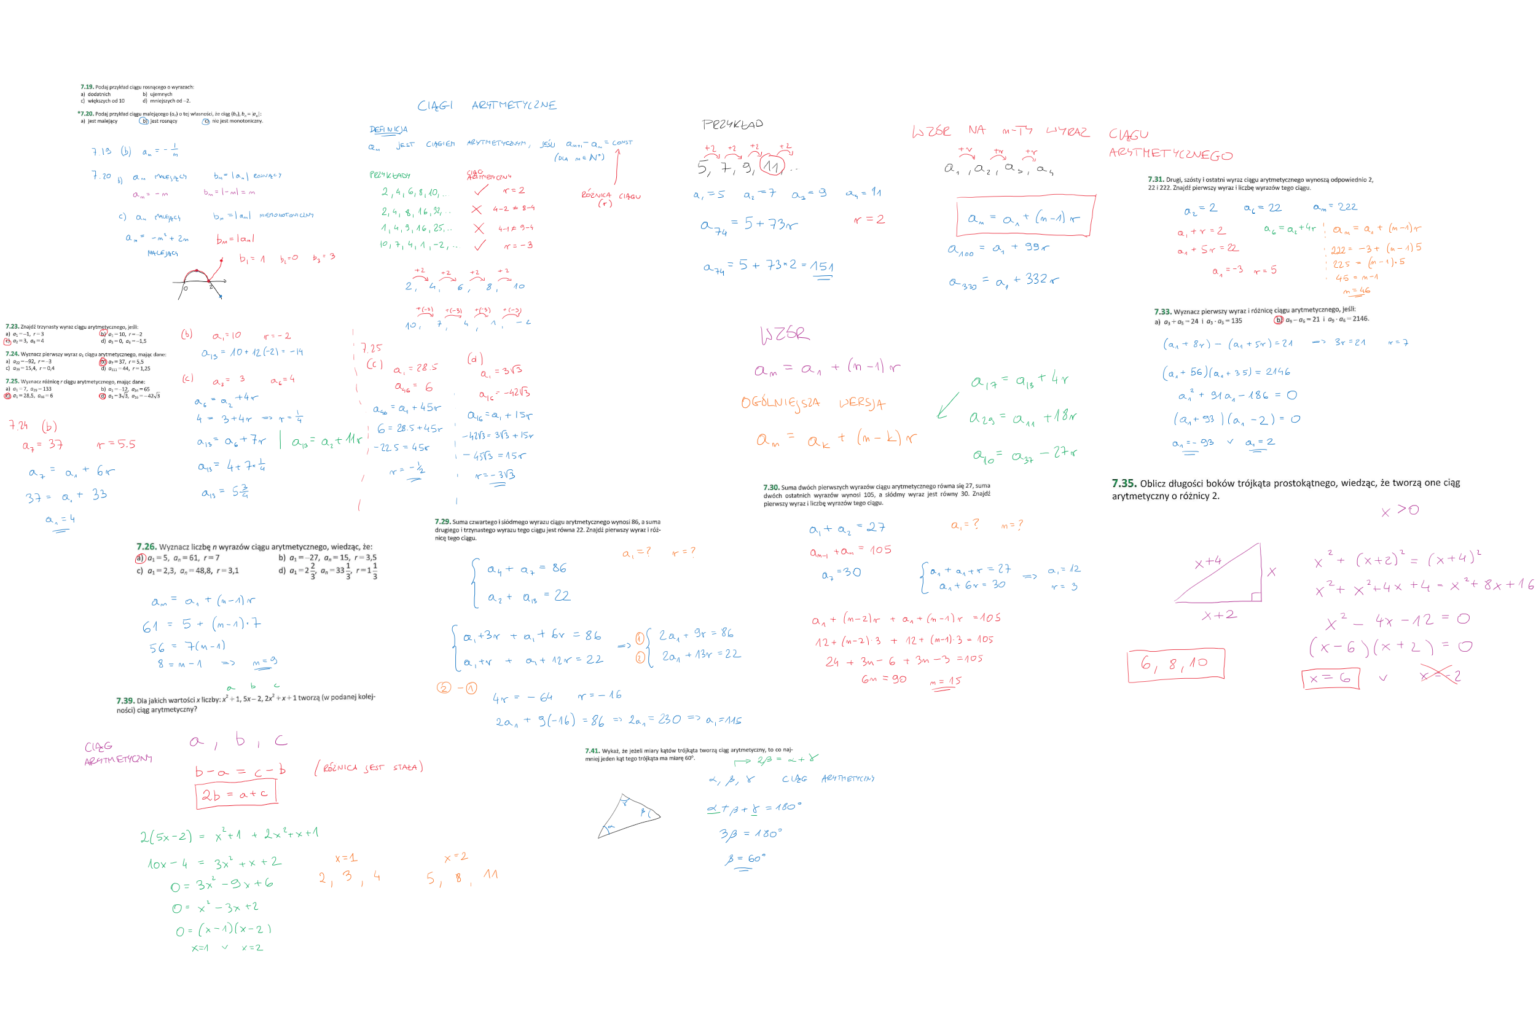 7.19. Podaj przykład ciągu rosnącego o wyrazach:
a) dodatnich b) ujemnych
c) większych od 10 d) mniejszych od -2.
a) jest malejący b) jest rosnący c) nie jest monotoniczny.
7.19 (b) aₙ = -1/n
7.20 b) aₙ MALEJĄCY bₙ = |aₙ| ROSNĄCY
aₙ = -n bₙ = |-n| = n
c) aₙ MALEJĄCY bₙ = |aₙ| NIEMONOTONICZNY
aₙ = -n² + 2n bₙ = |aₙ|
MALEJĄCY
b₁ = 1 b₂ = 0 b₃ = 3
0 2
CIĄGI ARYTMETYCZNE
DEFINICJA
aₙ JEST CIĄGIEM ARYTMETYCZNYM, JEŚLI aₙ₊₁ - aₙ = CONST
(DLA n ∈ ℕ⁺)
PRZYKŁADY CIĄG ARYTMETYCZNY
2, 4, 6, 8, 10, .. ✓ r = 2
2, 4, 8, 16, 32, .. X 4-2 ≠ 8-4
1, 4, 9, 16, 25, .. X 4-1 ≠ 9-4
10, 7, 4, 1, -2, .. ✓ r = -3
RÓŻNICA CIĄGU
(r)
+2 +2 +2 +2
2, 4, 6, 8, 10
+(-3) +(-3) +(-3) +(-3)
10, 7, 4, 1, -2
PRZYKŁAD
+2 +2 +2 +2
5, 7, 9, 11, ..
a₁ = 5 a₂ = 7 a₃ = 9 a₄ = 11
a₇₄ = 5 + 73r r = 2
a₇₄ = 5 + 73·2 = 151
WZÓR NA n-TY WYRAZ CIĄGU
ARYTMETYCZNEGO
+r +r +r
a₁, a₂, a₃, a₄
aₙ = a₁ + (n-1)r
a₁₀₀ = a₁ + 99r
a₃₃₀ = a₁ + 332r
7.31. Drugi, szósty i ostatni wyraz ciągu arytmetycznego wynoszą odpowiednio 2,
22 i 222. Znajdź pierwszy wyraz i liczbę wyrazów tego ciągu.
a₂ = 2 a₆ = 22 aₙ = 222
a₁ + r = 2 a₆ = a₂ + 4r aₙ = a₁ + (n-1)r
a₁ + 5r = 22 222 = -3 + (n-1)5
a₁ = -3 r = 5 225 = (n-1)·5
45 = n-1
n = 46
7.33. Wyznacz pierwszy wyraz i różnicę ciągu arytmetycznego, jeśli:
(a₁ + 8r) - (a₁ + 5r) = 21 => 3r = 21 r = 7
(a₁ + 56)(a₁ + 35) = 2146
a₁² + 91a₁ - 186 = 0
(a₁ + 93)(a₁ - 2) = 0
a₁ = -93 ∨ a₁ = 2
7.23. Znajdź trzynasty wyraz ciągu arytmetycznego, jeśli:
a) a₁ = -1, r = 3 b) a₁ = 10, r = -2
c) a₂ = 3, a₆ = 4 d) a₁ = 0, a₄ = -1,5
7.24. Wyznacz pierwszy wyraz a₁ ciągu arytmetycznego, mając dane:
7.25. Wyznacz różnicę r ciągu arytmetycznego, mając dane:
(b) a₁ = 10 r = -2
a₁₃ = 10 + 12(-2) = -14
(c) a₂ = 3 a₆ = 4
a₆ = a₂ + 4r
4 = 3 + 4r => r = 1/4
a₁₃ = a₆ + 7r | a₁₃ = a₂ + 11r
a₁₃ = 4 + 7·1/4
a₁₃ = 5 3/4
7.24 (b)
a₇ = 37 r = 5.5
a₇ = a₁ + 6r
37 = a₁ + 33
a₁ = 4
7.25
(c) a₁ = 28.5
a₄₆ = 6
a₄₆ = a₁ + 45r
6 = 28.5 + 45r
-22.5 = 45r
r = -1/2
(d)
a₁ = 3√3
a₁₆ = -42√3
a₁₆ = a₁ + 15r
-42√3 = 3√3 + 15r
-45√3 = 15r
r = -3√3
WZÓR
aₙ = a₁ + (n-1)r
OGÓLNIEJSZA WERSJA
aₙ = aₖ + (n-k)r
a₁₇ = a₁₃ + 4r
a₂₉ = a₁₁ + 18r
a₁₀ = a₃₇ - 27r
7.26. Wyznacz liczbę n wyrazów ciągu arytmetycznego, wiedząc, że:
a) a₁ = 5, aₙ = 61, r = 7 b) a₁ = -27, aₙ = 15, r = 3,5
c) a₁ = 2,3, aₙ = 48,8, r = 3,1 d) a₁ = 2 2/3, aₙ = 33 1/3, r = 1 1/3
aₙ = a₁ + (n-1)r
61 = 5 + (n-1)·7
56 = 7(n-1)
8 = n-1 => n = 9
7.29. Suma czwartego i siódmego wyrazu ciągu arytmetycznego wynosi 86, a suma
drugiego i trzynastego wyrazu tego ciągu jest równa 22. Znajdź pierwszy wyraz i róż-
nicę tego ciągu.
a₁ = ? r = ?
a₄ + a₇ = 86
a₂ + a₁₃ = 22
a₁ + 3r + a₁ + 6r = 86 => ① 2a₁ + 9r = 86
a₁ + r + a₁ + 12r = 22 ② 2a₁ + 13r = 22
② - ①
4r = -64 r = -16
2a₁ + 9(-16) = 86 => 2a₁ = 230 => a₁ = 115
7.30. Suma dwóch pierwszych wyrazów ciągu arytmetycznego równa się 27, suma
dwóch ostatnich wyrazów wynosi 105, a siódmy wyraz jest równy 30. Znajdź
pierwszy wyraz i liczbę wyrazów tego ciągu.
a₁ + a₂ = 27 a₁ = ? n = ?
aₙ₋₁ + aₙ = 105
a₇ = 30
a₁ + a₁ + r = 27 => a₁ = 12
a₁ + 6r = 30 r = 3
a₁ + (n-2)r + a₁ + (n-1)r = 105
12 + (n-2)·3 + 12 + (n-1)3 = 105
24 + 3n - 6 + 3n - 3 = 105
6n = 90 n = 15
7.35. Oblicz długości boków trójkąta prostokątnego, wiedząc, że tworzą one ciąg
arytmetyczny o różnicy 2.
x > 0
x+4 x
x+2
x² + (x+2)² = (x+4)²
x² + x² + 4x + 4 = x² + 8x + 16
x² - 4x - 12 = 0
(x-6)(x+2) = 0
x = 6 ∨ x = -2
6, 8, 10
a b c
7.39. Dla jakich wartości x liczby: x² + 1, 5x - 2, 2x² + x + 1 tworzą (w podanej kolej-
ności) ciąg arytmetyczny?
CIĄG
ARYTMETYCZNY
a, b, c
b-a = c-b (RÓŻNICA JEST STAŁA)
2b = a+c
2(5x-2) = x²+1 + 2x²+x+1
10x - 4 = 3x² + x + 2
0 = 3x² - 9x + 6
0 = x² - 3x + 2
0 = (x-1)(x-2)
x=1 ∨ x=2
x=1 x=2
2, 3, 4 5, 8, 11
7.41. Wykaż, że jeżeli miary kątów trójkąta tworzą ciąg arytmetyczny, to co naj-
mniej jeden kąt tego trójkąta ma miarę 60°.
2β = α + γ
α, β, γ CIĄG ARYTMETYCZNY
α + β + γ = 180°
3β = 180°
β = 60°